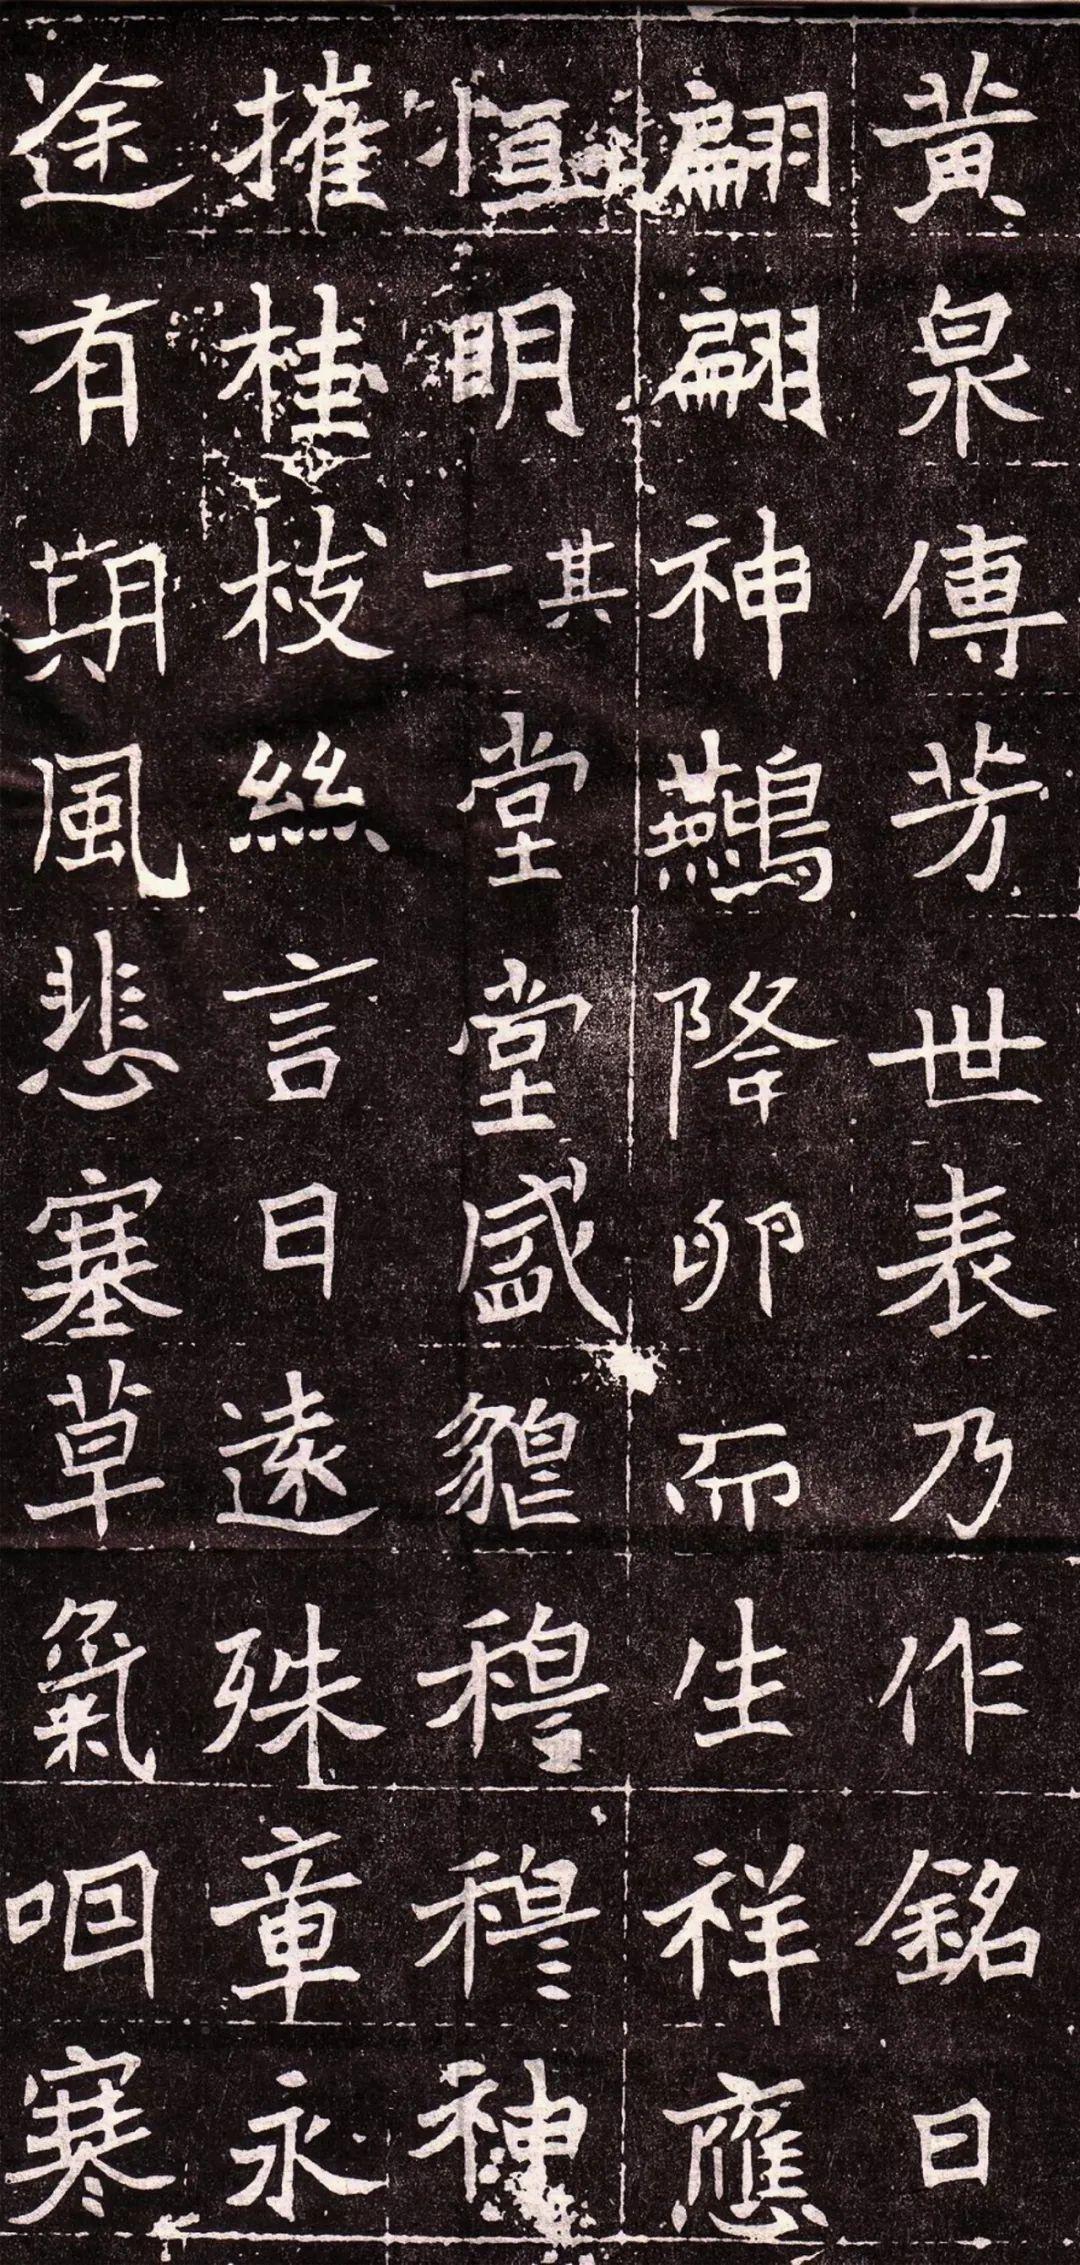 黃泉傳芳世表乃作銘曰
翩翩神䴏降卵而生祥應
恒明其一堂堂盛貌穆穆神
摧桂枝絲言日遠殊章永
途有期風悲塞草氣咽寒